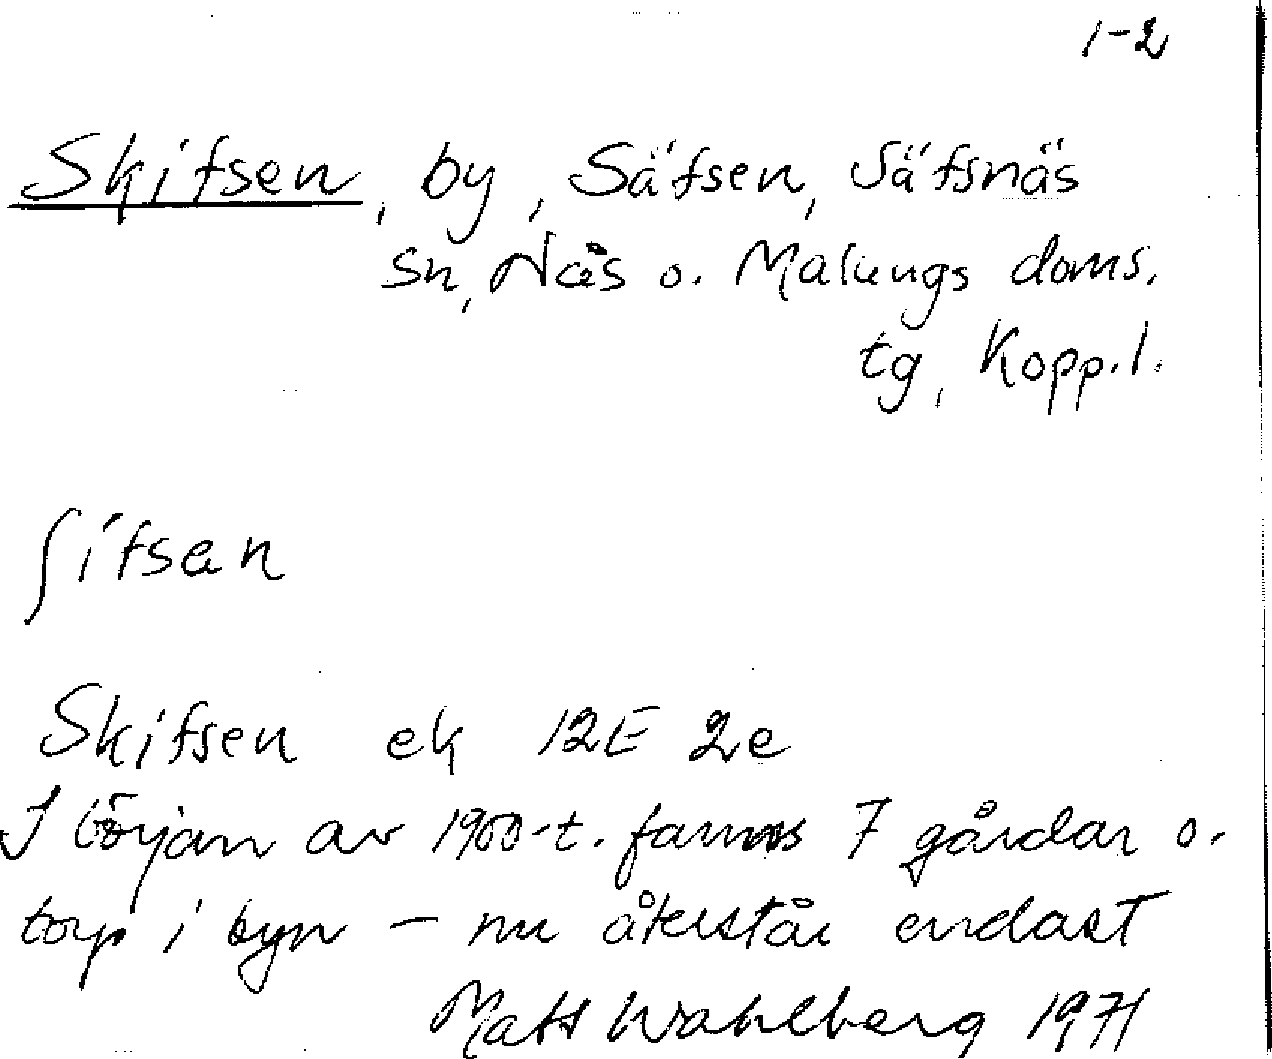 1-2
Skifsen, by, Säfsen, Säfsnäs
sn, Nås o. Malungs doms.
tg, Kopp.l.
ʃifsan
Skifsen ek 12E 2e
I början av 1900-t. fanns 7 gårdar o.
torp i byn – nu återstår endast
Mats Wahlberg 1971